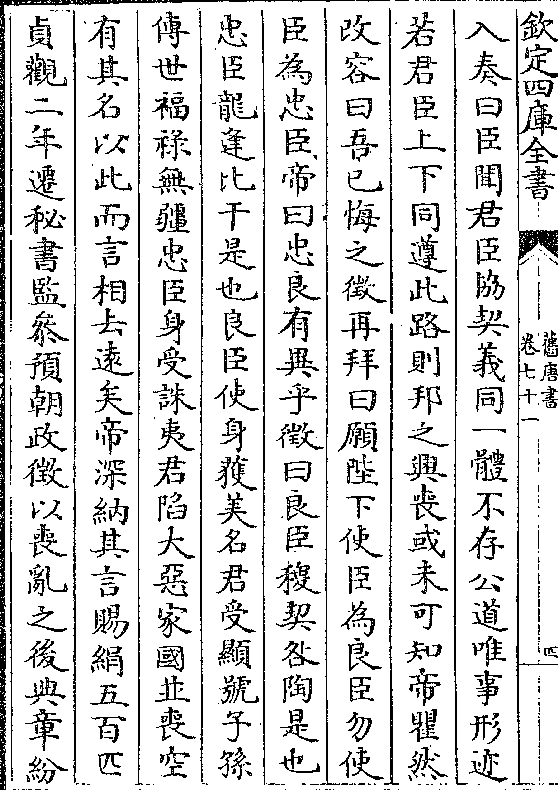 欽定四庫全書
舊唐書
卷七十一
四
入奏曰臣聞君臣協契義同一體不存公道唯事形迹
若君臣上下同遵此路則邦之興喪或未可知帝瞿然
改容曰吾已悔之徵再拜曰願陛下使臣為良臣勿使
臣為忠臣帝曰忠良有異乎徵曰良臣稷契咎陶是也
忠臣龍逢比干是也良臣使身獲美名君受顯號子孫
傳世福祿無疆忠臣身受誅夷君陷大惡家國並喪空
有其名以此而言相去遠矣帝深納其言賜絹五百匹
貞觀二年遷秘書監參預朝政徵以喪亂之後典章紛